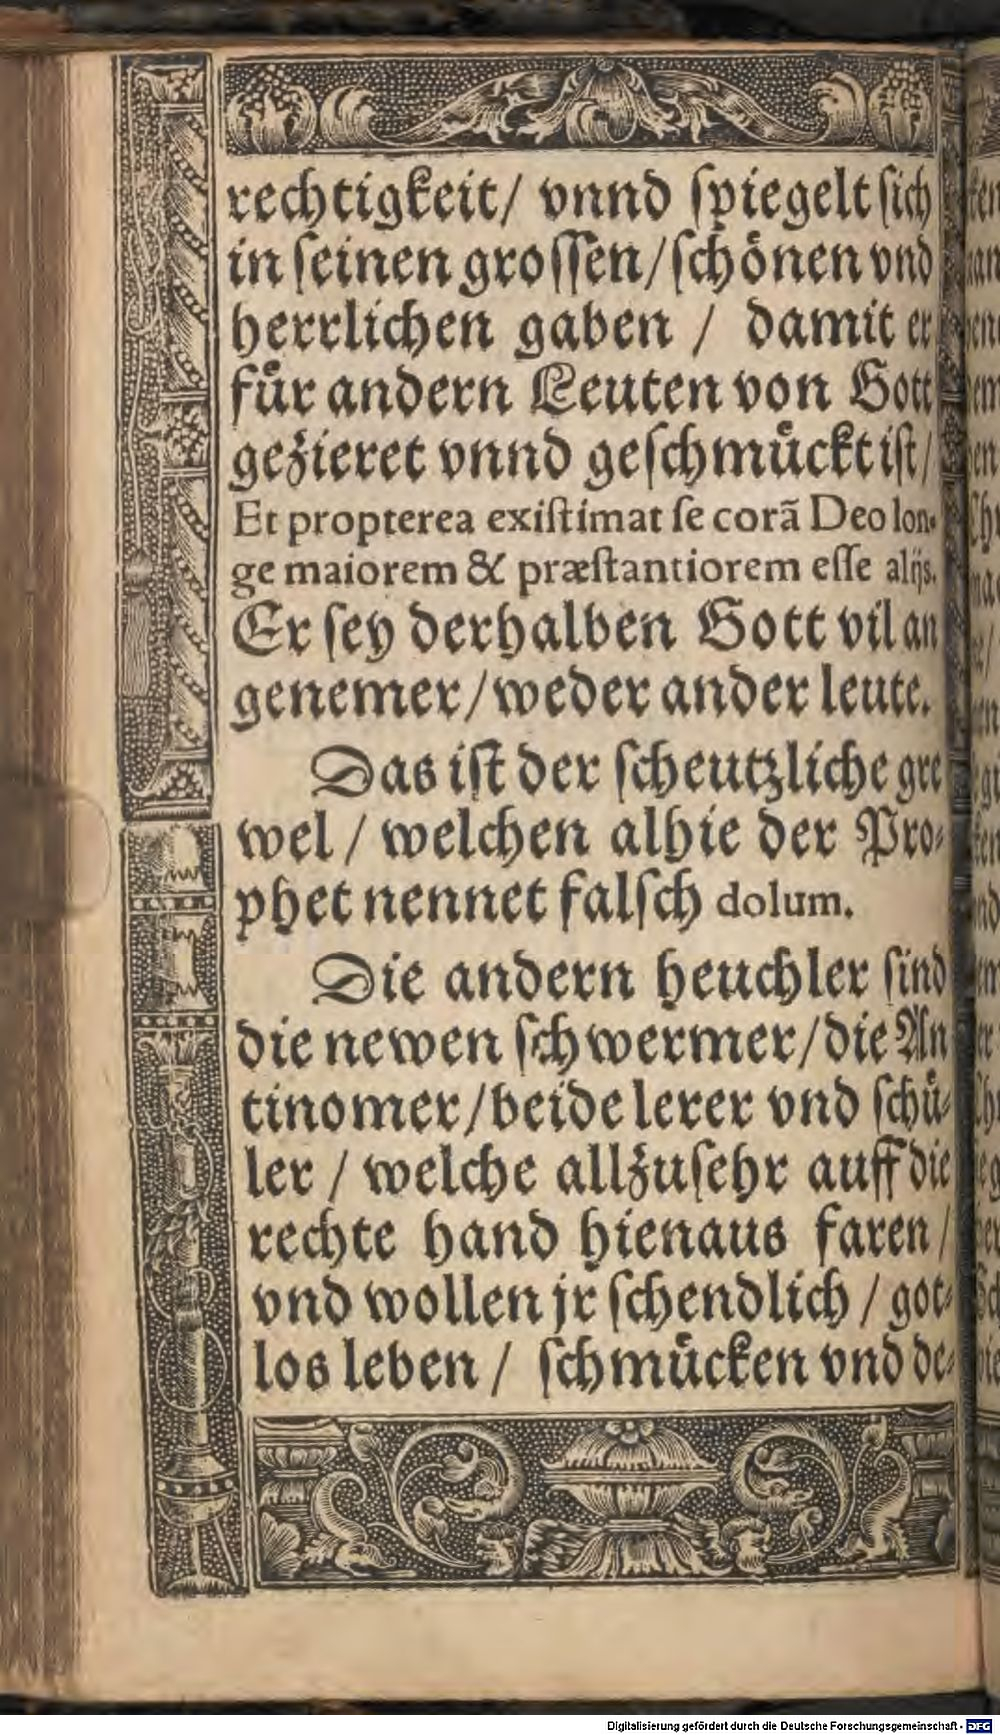 rechtigkeit/ vnnd ſpiegelt ſich
in ſeinen groſſen/ſchoͤnen vnd
herrlichen gaben / damit er
fuͤr andern Leuten von Gott
gezieret vnnd geſchmuͤckt iſt/
Et propterea exiſtimat ſe corã Deo lon-
ge maiorem & præſtantiorem eſſe alijs.
Er ſey derhalben Gott vil an
genemer/weder ander leute.
Das iſt der ſcheutzliche gre
wel / welchen alhie der Pro-
phet nennet falſch dolum.
Die andern heuchler ſind
die newen ſchwermer/die An
tinomer/beide lerer vnd ſchuͤ-
ler / welche allzuſehr auff die
rechte hand hienaus faren/
vnd wollen jr ſchendlich / got-
los leben / ſchmuͤcken vnd de-
Digitalisierung gefördert durch die Deutsche Forschungsgemeinschaft - DFG